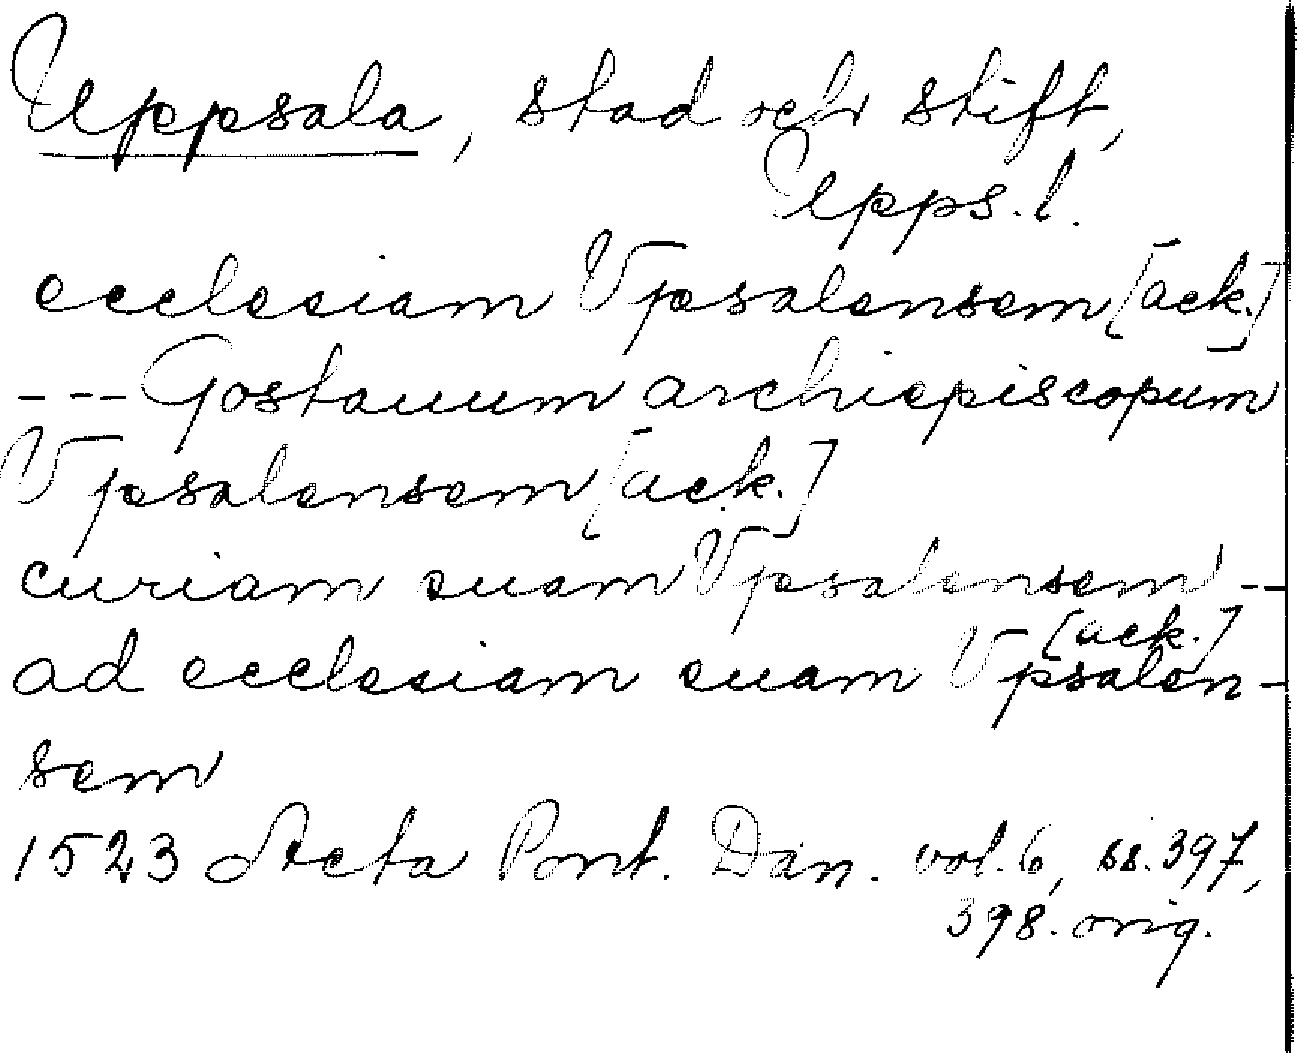 Uppsala, stad och stift,
Upps. l.
ecclesiam Vpsalensem [ack.]
--- Gostauum archiepiscopum
Vpsalensem [ack.]
curiam suam Vpsalensem --
[ack.]
ad ecclesiam suam Vpsalen-
sem
1523 Acta Pont. Dan. vol. 6, ss. 397,
398. orig.